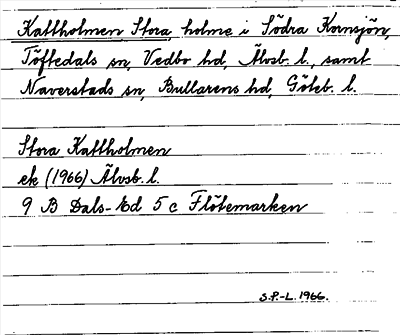 Kattholmen Stora holme i Södra Kornsjön,
Töftedals sn, Vedbo hd, Älvsb. l., samt
Naverstads sn, Bullarens hd, Göteb. l.
Stora Kattholmen
ek (1966) Älvsb. l.
9 B Dals-Ed 5 c Flötemarken
S.P.-L. 1966.